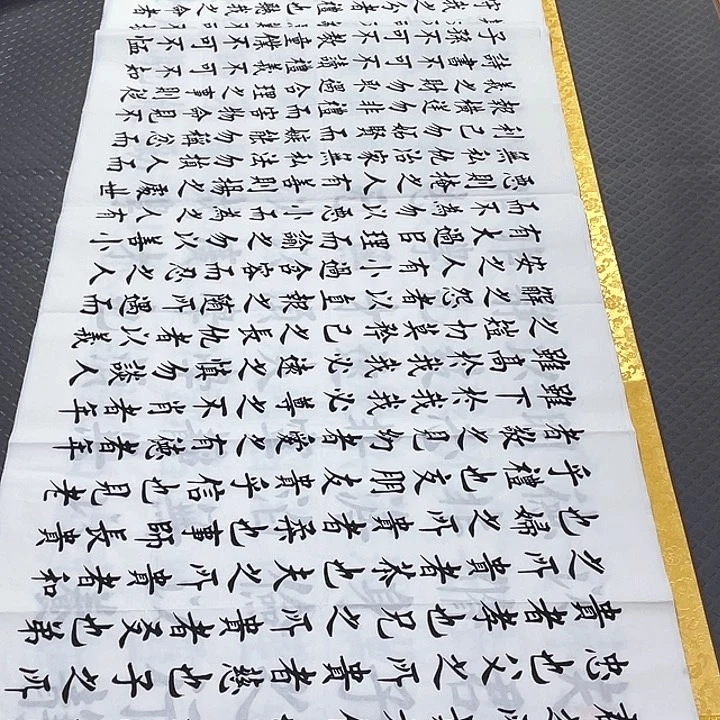 忠也父之所貴者慈也子之所
貴者孝也兄之所貴者友也弟
之所貴者恭也夫之所貴者和
也婦之所貴者柔也事師長貴
乎禮也交朋友貴乎信也見老
者敬之見幼者愛之有德者年
雖下於我我必尊之不肖者年
雖高於我我必遠之慎勿談人
之短切莫矜己之長仇者以義
解之怨者以直報之隨所遇而
安之人有小過含容而忍之人
有大過以理而諭之勿以善小
而不為勿以惡小而為之人有
惡則掩之人有善則揚之處世
無私仇治家無私法勿損人而
利己勿妬賢而嫉能勿稱忿而
報橫逆勿非禮而害物命見不
義之財勿取遇合理之事則從
詩書不可不讀禮義不可不知
子孫不可不教童僕不可不恤
守我之分者禮也聽我之命者